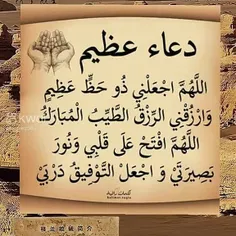 دعاء عظيم
اللَّهُمَّ اجْعَلْنِي ذُو حَظٍّ عَظِيمٍ
وَارْزُقْنِي الرِّزْقَ الطَّيِّبُ الْمُبَارَكُ
اللَّهُمَّ افْتَحْ عَلَى قَلْبِي وَنُورَ
بَصِيرَتِي وَ اجْعَلْ التَّوْفِيقُ دَرْبِي